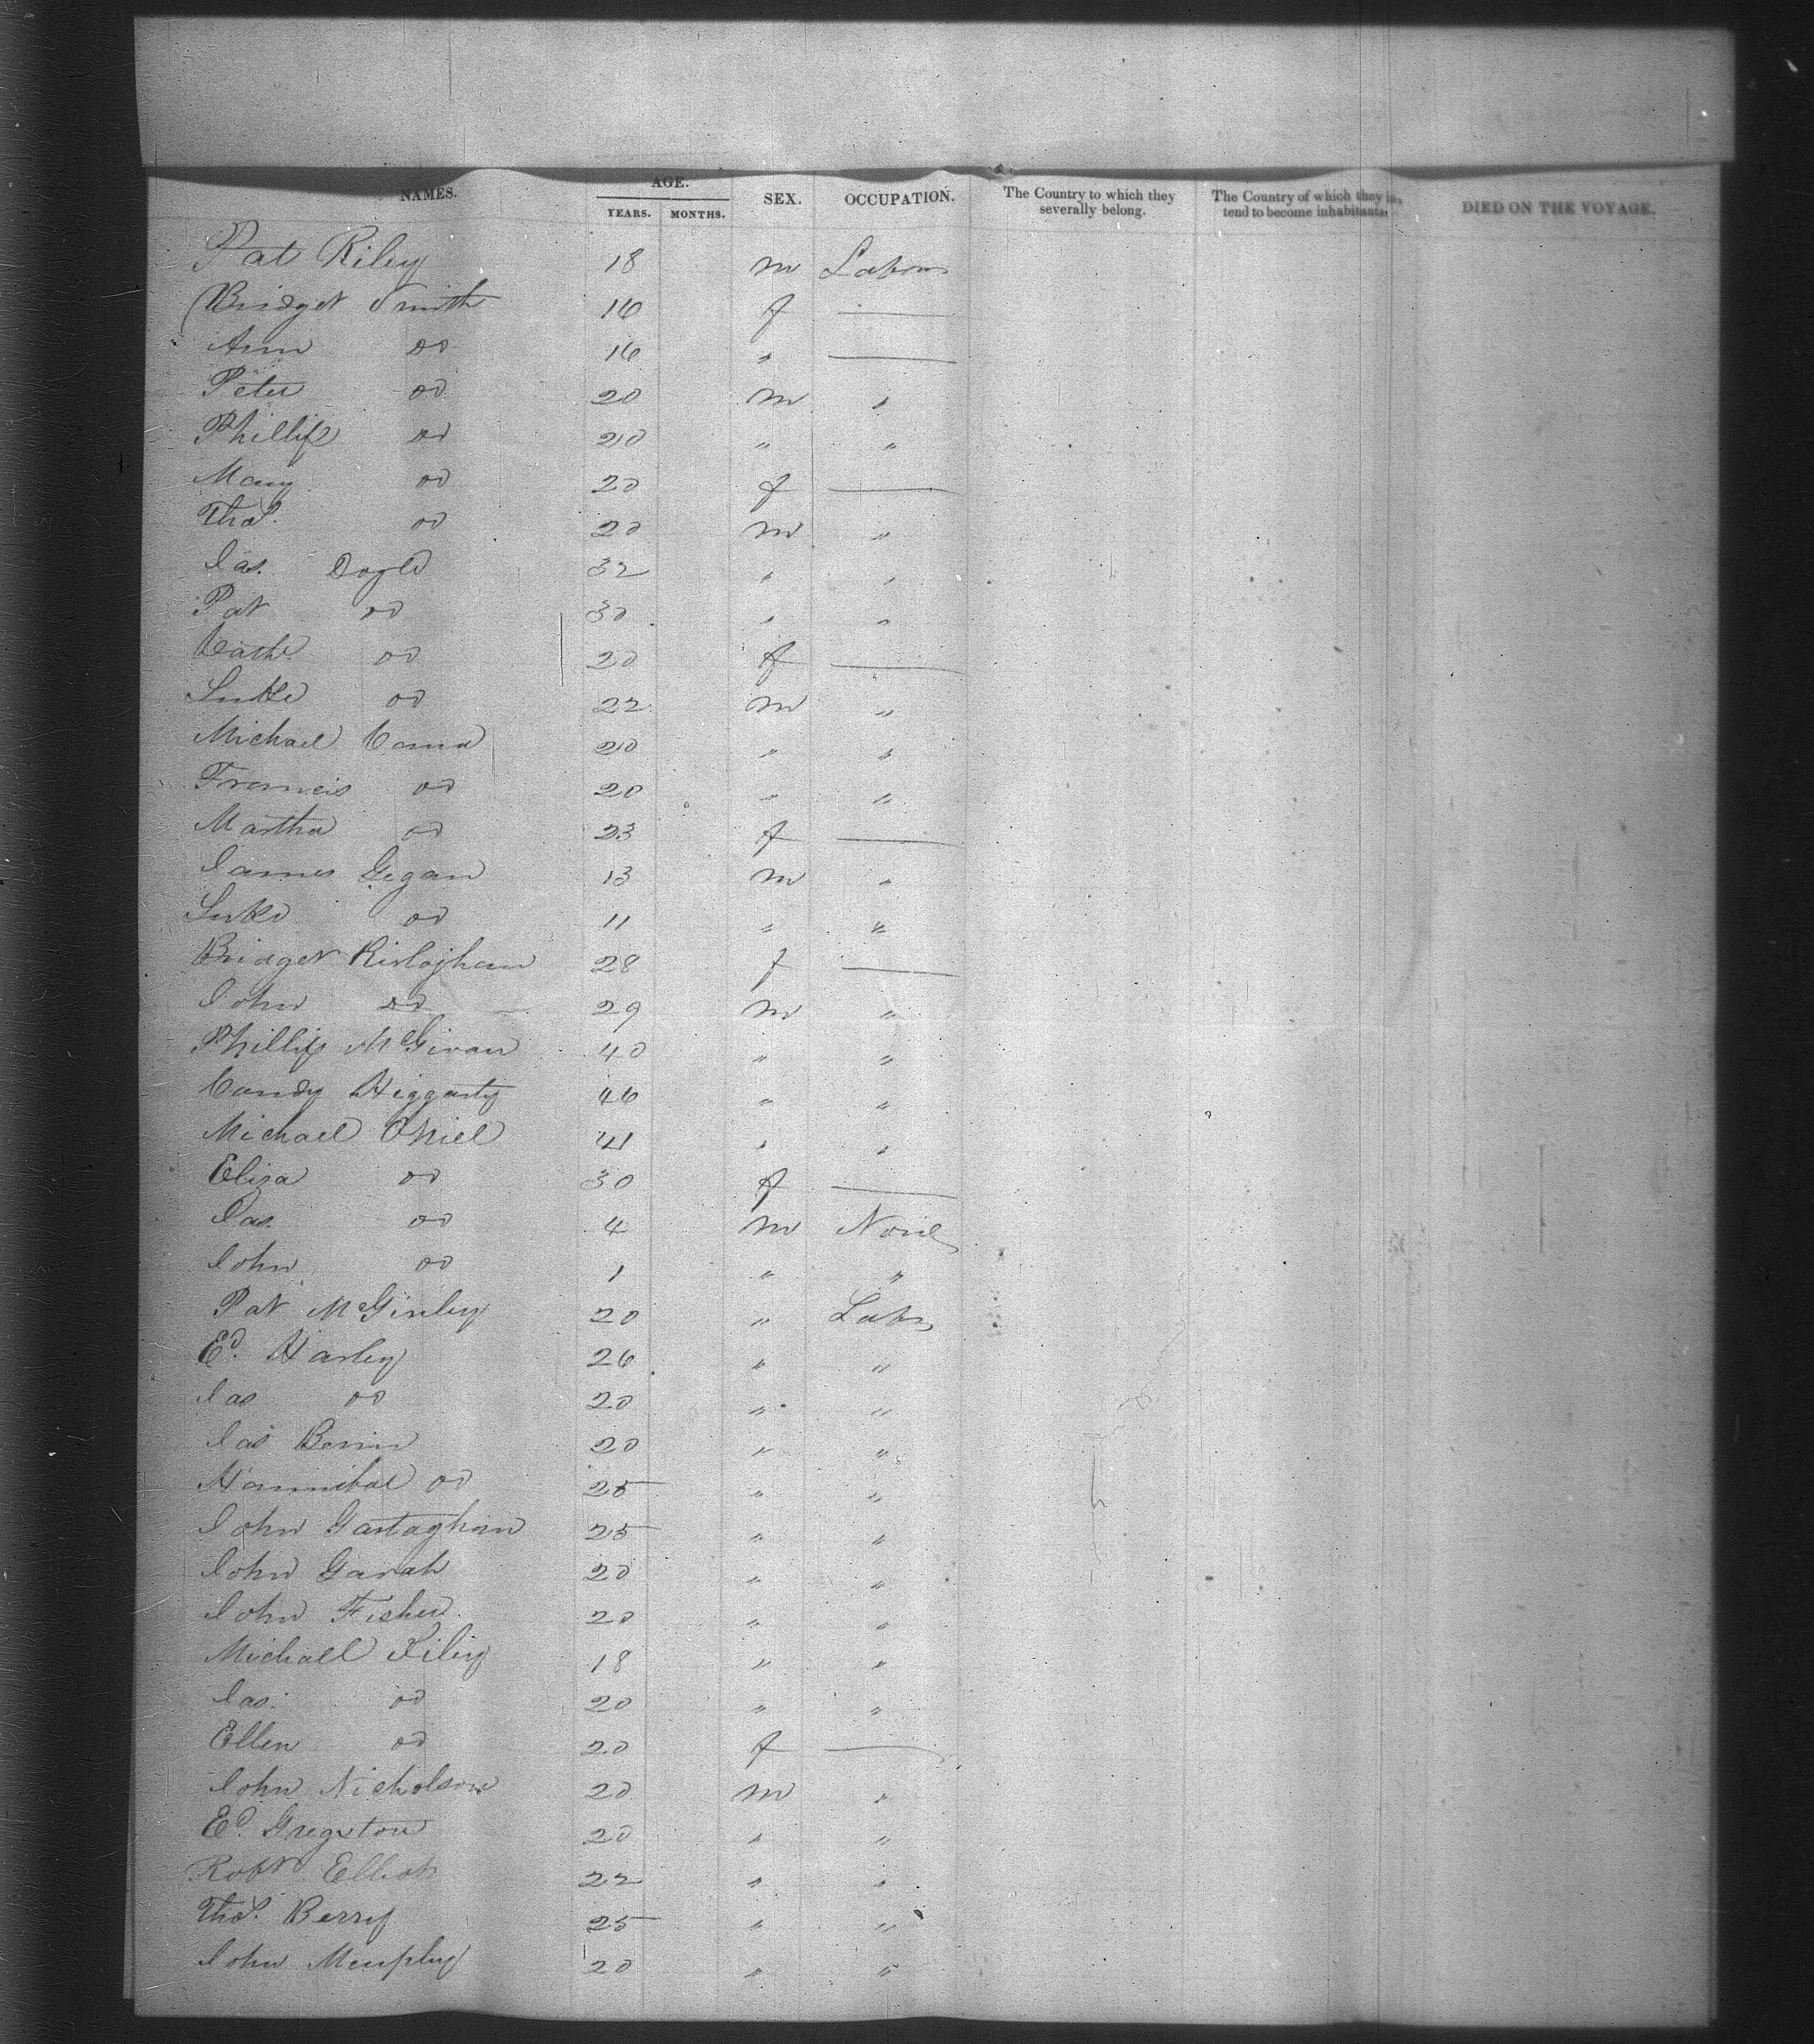 NAMES. AGE. YEARS. MONTHS. SEX. OCCUPATION. The Country to which they severally belong. The Country of which they in, tend to become inhabitants. DIED ON THE VOYAGE.
Pat Riley 18 m Labour
Bridget Smith 16 f —
Ann do 16 " —
Peter do 20 m "
Phillip do 20 " "
Mary do 20 f —
Thos. do 20 m "
Jas. Dogle 32 " "
Pat do 30 " "
Cath. do 20 f —
Luke do 22 m "
Michael 20 " "
Francis do 20 " "
Martha do 23 f —
James Gegan 13 m "
Luke do 11 " "
Bridget 28 f —
John do 29 m "
Phillip McGivan 40 " "
Condy Higgarty 46 " "
Michael ONiel 41 " "
Eliza do 30 f —
Jas. do 4 m None
John do 1 " "
Pat McGinley 20 " Labr
Ed. Harley 26 " "
Jas do 20 " "
Jas 20 " "
Hannibal do 25 " "
John Gartaghan 25 " "
John Garah 20 " "
John Fisher 20 " "
Michael 18 " "
Jas. do 20 " "
Ellen do 20 f —
John Nicholson 20 m "
Ed. Gregston 20 " "
Robt Elliot 22 " "
Thos. Berry 25 " "
John Murphy 20 " "